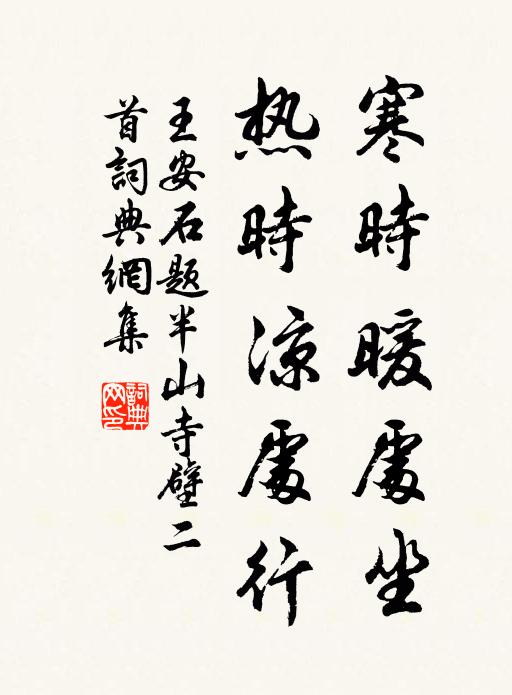 寒時暖處坐
热時凉處行
王安石题半山寺壁二
首詞典網集
詞典網印